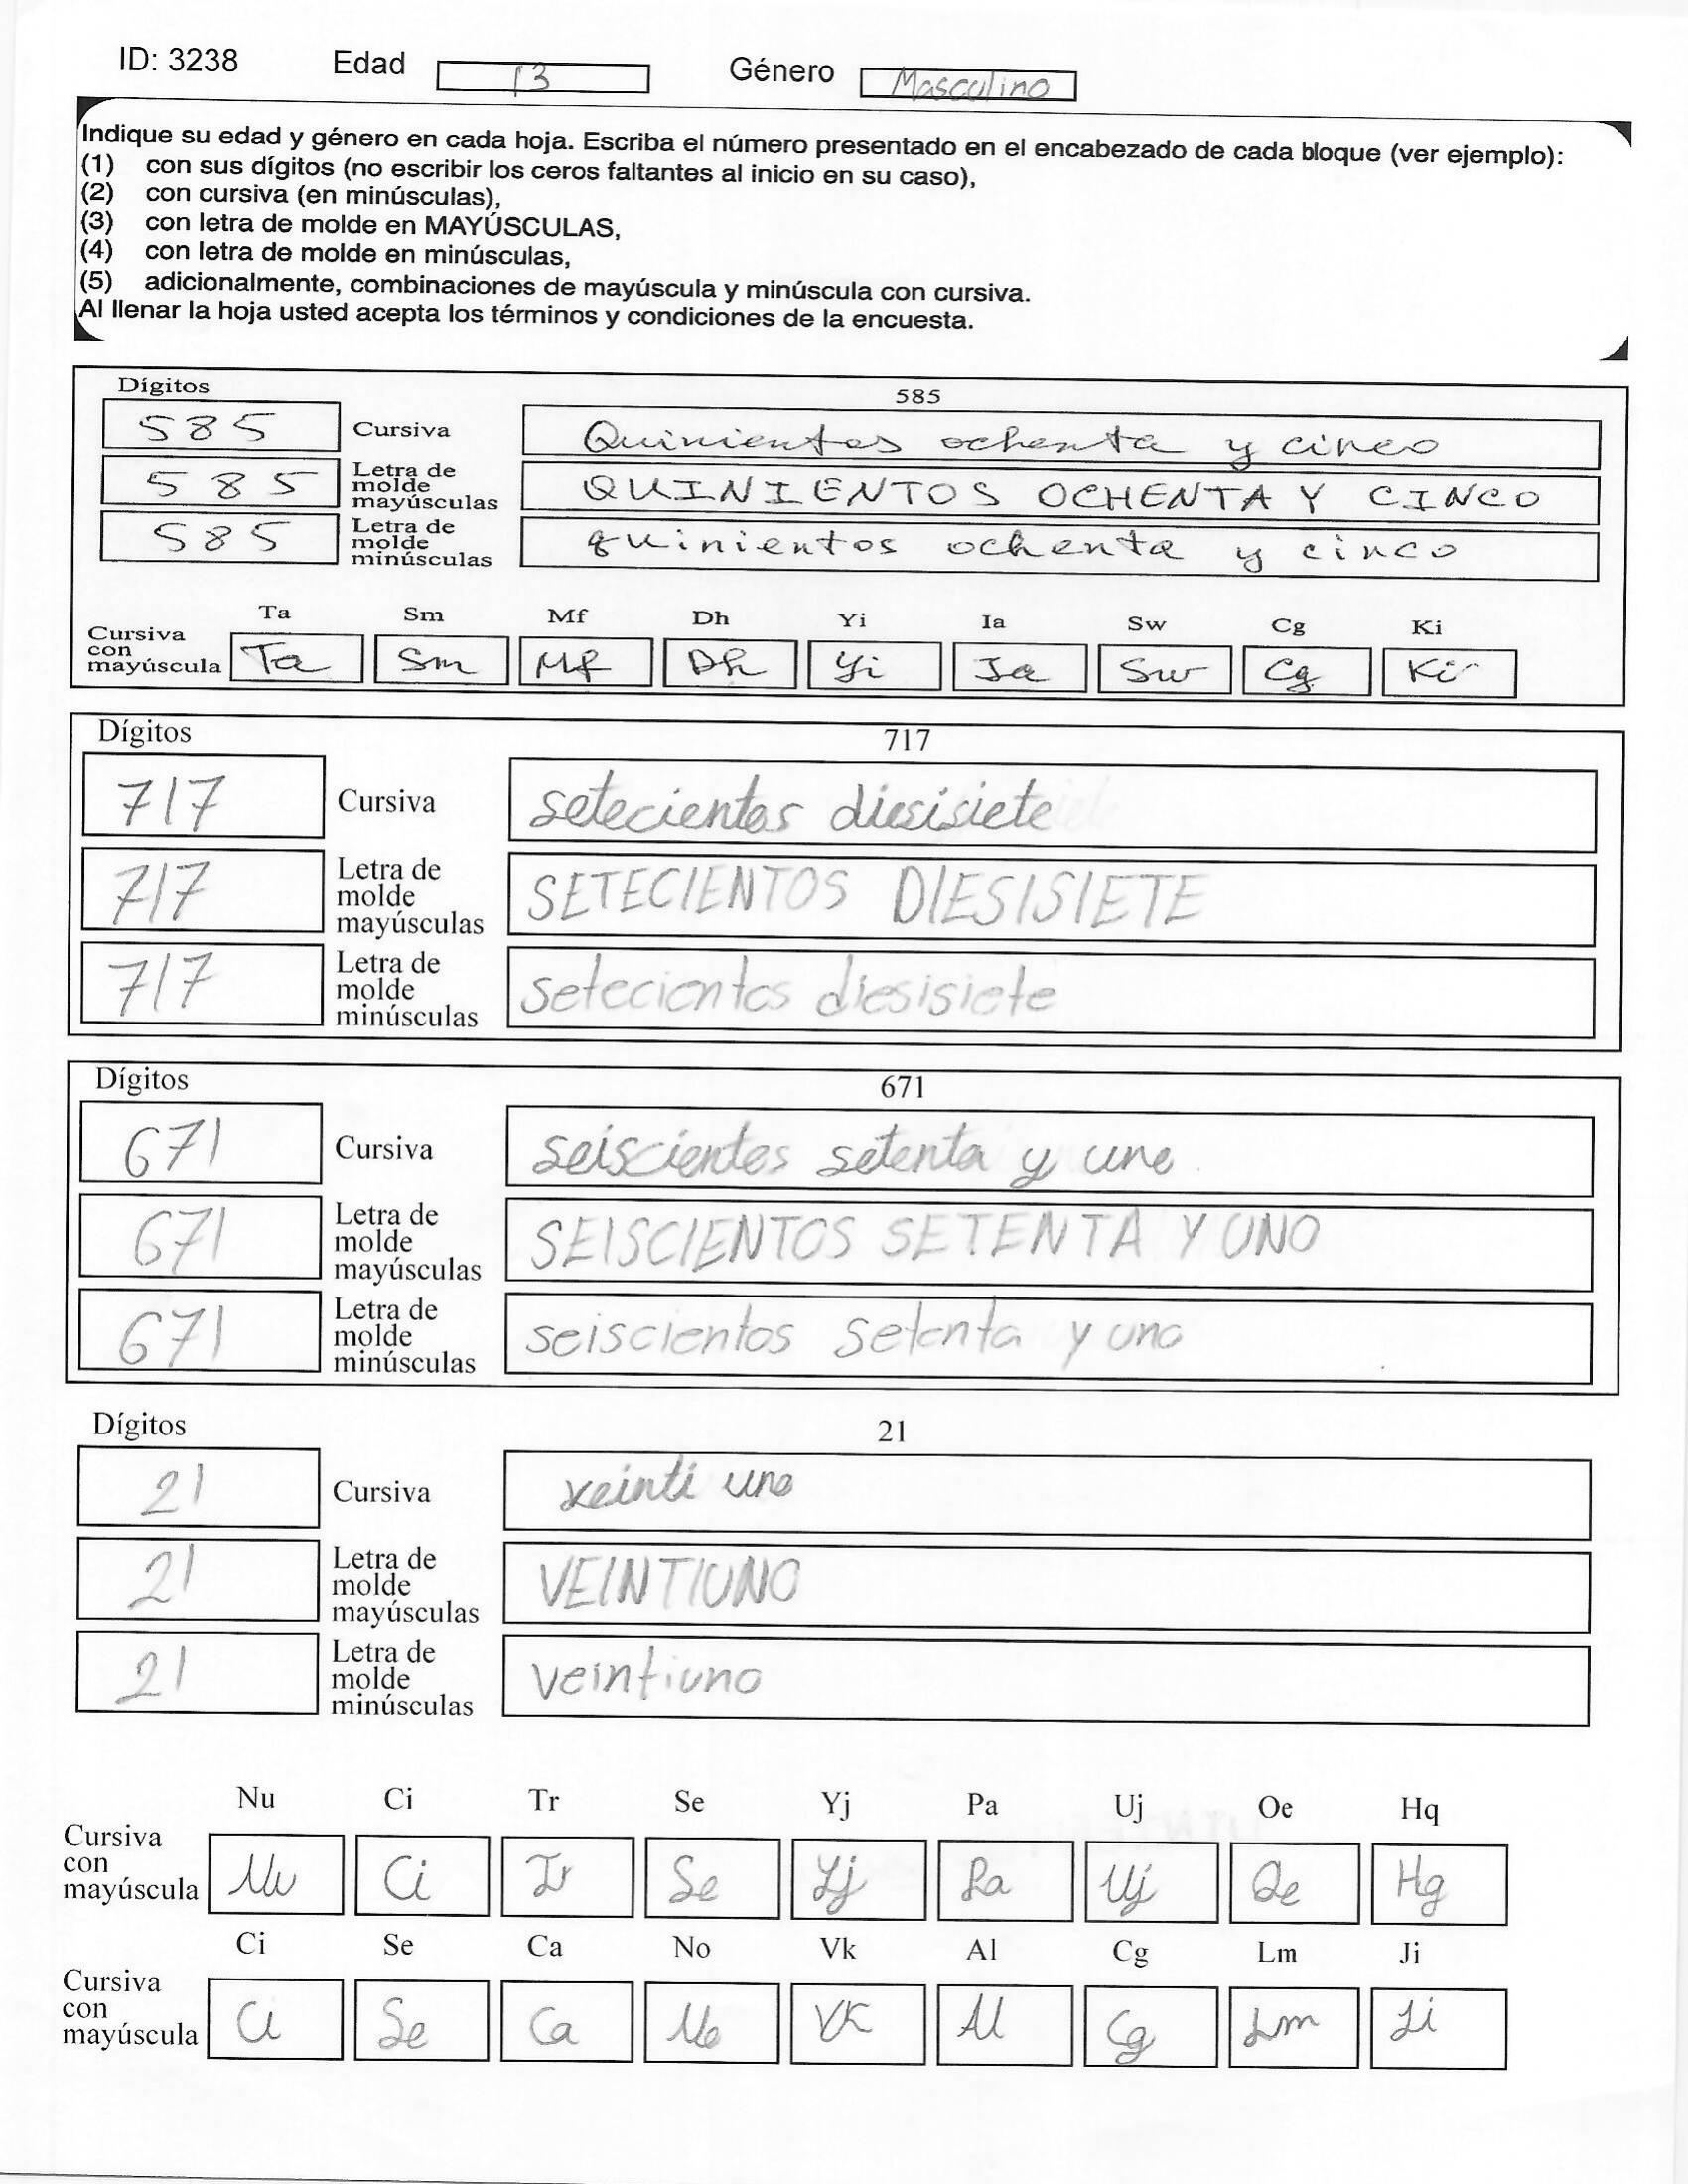 ID: 3238 Edad 13 Género Masculino
Indique su edad y género en cada hoja. Escriba el número presentado en el encabezado de cada bloque (ver ejemplo):
(1) con sus dígitos (no escribir los ceros faltantes al inicio en su caso),
(2) con cursiva (en minúsculas),
(3) con letra de molde en MAYÚSCULAS,
(4) con letra de molde en minúsculas,
(5) adicionalmente, combinaciones de mayúscula y minúscula con cursiva.
Al llenar la hoja usted acepta los términos y condiciones de la encuesta.
Dígitos 585
585 Cursiva Quinientos ochenta y cinco
585 Letra de molde mayúsculas QUINIENTOS OCHENTA Y CINCO
585 Letra de molde minúsculas quinientos ochenta y cinco
Ta Sm Mf Dh Yi Ia Sw Cg Ki
Cursiva con mayúscula Ta Sm Mf Dh Yi Ia Sw Cg Ki
Dígitos 717
717 Cursiva setecientos diesisiete
717 Letra de molde mayúsculas SETECIENTOS DIESISIETE
717 Letra de molde minúsculas setecientos diesisiete
Dígitos 671
671 Cursiva seiscientos setenta y uno
671 Letra de molde mayúsculas SEISCIENTOS SETENTA Y UNO
671 Letra de molde minúsculas seiscientos setenta y uno
Dígitos 21
21 Cursiva veinti uno
21 Letra de molde mayúsculas VEINTIUNO
21 Letra de molde minúsculas veintiuno
Nu Ci Tr Se Yj Pa Uj Oe Hq
Cursiva con mayúscula Nu Ci Tr Se Yj Pa Uj Oe Hg
Ci Se Ca No Vk Al Cg Lm Ji
Cursiva con mayúscula Ci Se Ca No Vk Al Cg Lm Ji